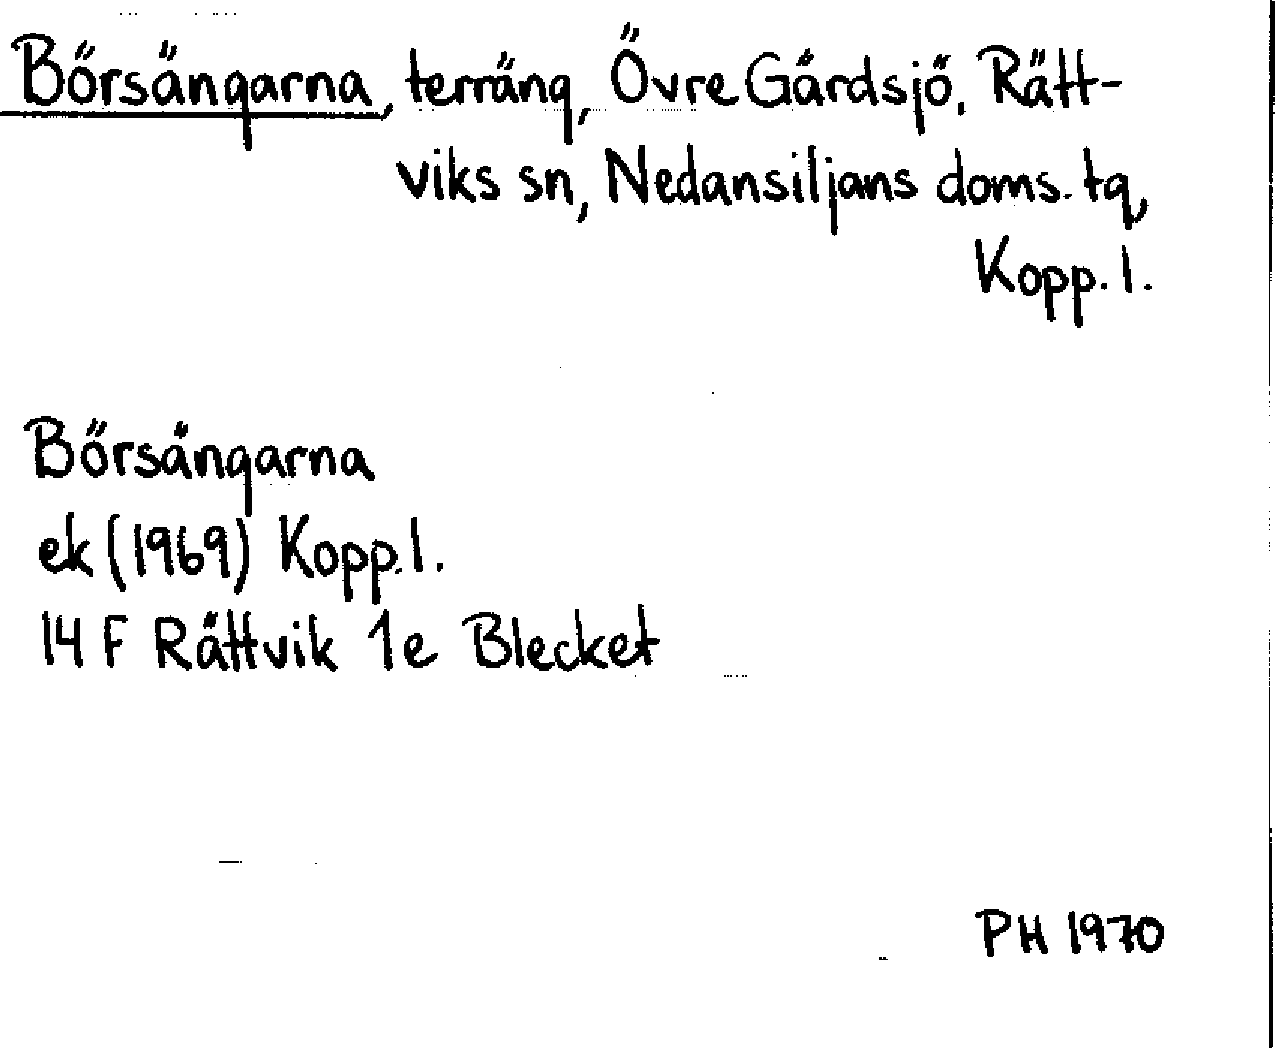 Börsängarna, terräng, Övre Gärdsjö, Rätt-
viks sn, Nedansiljans doms. tg,
Kopp. l.
Börsängarna
ek (1969) Kopp. l.
14 F Rättvik 1e Blecket
PH 1970